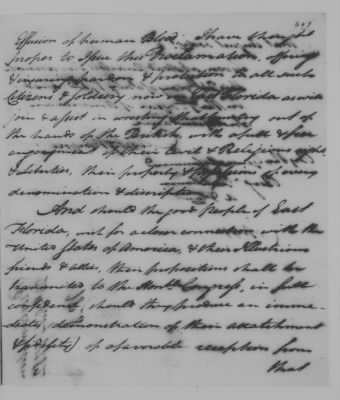 Effusion of human Blood. I have thought
proper to Issue this Proclamation, offering
& ensuring pardon & protection to all such
Citizens & Soldiers now in East Florida as will
join & assist in wresting that Country out of
the hands of the British, with a full & free
enjoyment of their Civil & Religious rights
& Liberties, their property & possessions of every
denomination & description.
And should the good People of East
Florida, wish for a closer connection with the
United States of America, & their Illustrious
friends & allies, their propositions shall be
transmitted to the Honble Congress, in full
confidence (should they produce an imme-
diate demonstration of their attachment
& fidelity) of a favorable reception from
that